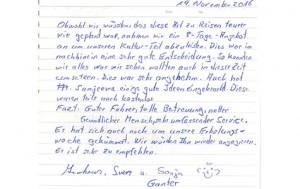 14. November 2016
Obwohl wir wussten, dass diese Art zu Reisen teurer
wie geplant war, nahmen wir ein 8-Tage-Angebot
an um unseren Kultur-Teil abzuleisten. Dies war im
nachhinein eine sehr gute Entscheidung. So konnten
wir alles was wir sehen wollten auch in dieser Zeit
. Dies war sehr angenehm. Auch hat
Sanjeewa einige gute Ideen eingebracht. Diese
waren teils noch kostenlos
Fazit: Guter Fahrer, tolle Betreuung, netter
freundlicher Mensch, sehr umfassender Service.
Es hat sich auch noch um unsere Erholungs-
woche gekümmert. Wir würden ihn wieder engagieren.
Er ist sehr zu empfehlen.
Sven u. Sonja
Ganter